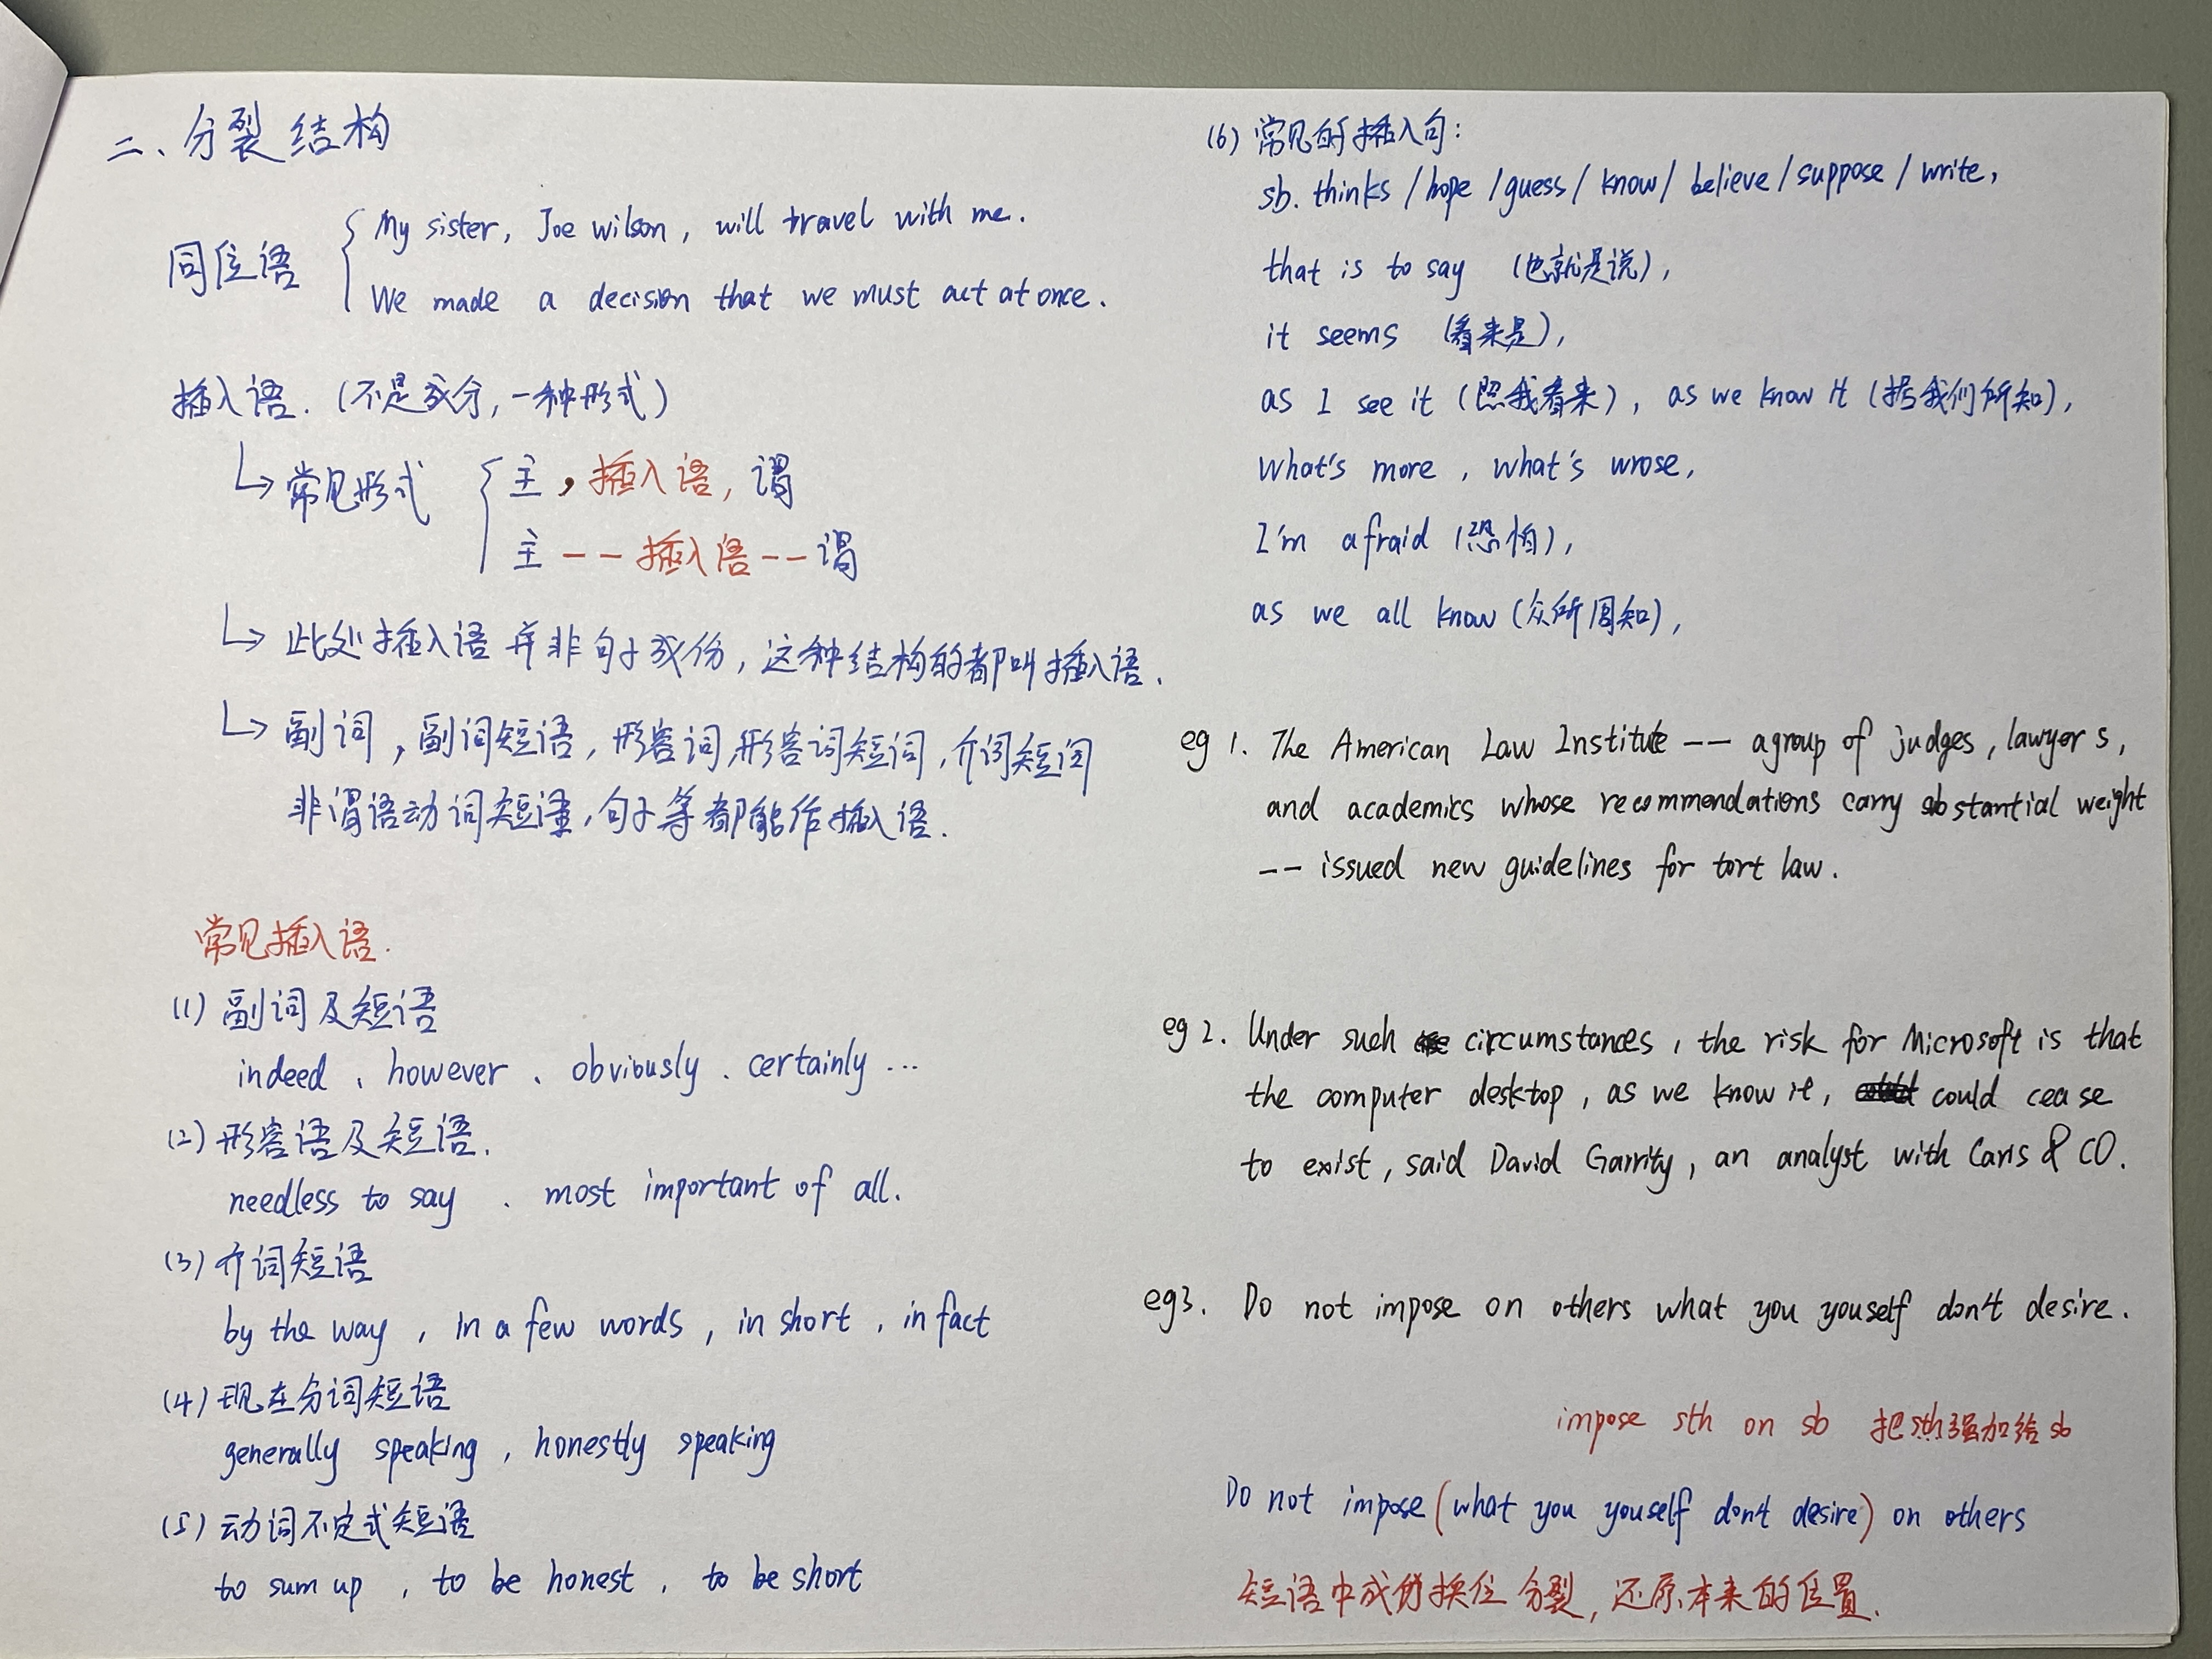 二、分裂结构
同位语
My sister, Joe wilson, will travel with me.
We made a decision that we must act at once.
插入语.（不是成分,一种形式）
↳常见形式
主,插入语,谓
主--插入语--谓
↳此处插入语并非句子成份,这种结构的都叫插入语.
↳副词,副词短语,形容词,形容词短词,介词短词
非谓语动词短语,句子等都能作插入语.
常见插入语.
(1) 副词及短语
indeed、however、obviously、certainly...
(2) 形容语及短语.
needless to say、most important of all.
(3) 介词短语
by the way, in a few words, in short, in fact
(4) 现在分词短语
generally speaking, honestly speaking
(5) 动词不定式短语
to sum up, to be honest, to be short
(6) 常见的插入句:
sb. thinks / hope / guess / know / believe / suppose / write,
that is to say (也就是说),
it seems (看来是),
as I see it (照我看来), as we know it (据我们所知),
what's more, what's wrose,
I'm afraid (恐怕),
as we all know (众所周知),
eg 1. The American Law Institute -- a group of judges, lawyers,
and academics whose recommendations carry sbstantial weight
-- issued new guidelines for tort law.
eg 2. Under such circumstances, the risk for Microsoft is that
the computer desktop, as we know it, could cease
to exist, said David Garrity, an analyst with Caris & CO.
eg3. Do not impose on others what you youself don't desire.
impose sth on sb 把sth强加给sb
Do not impose (what you youself don't desire) on others
短语中成份换位分裂,还原本来的位置.